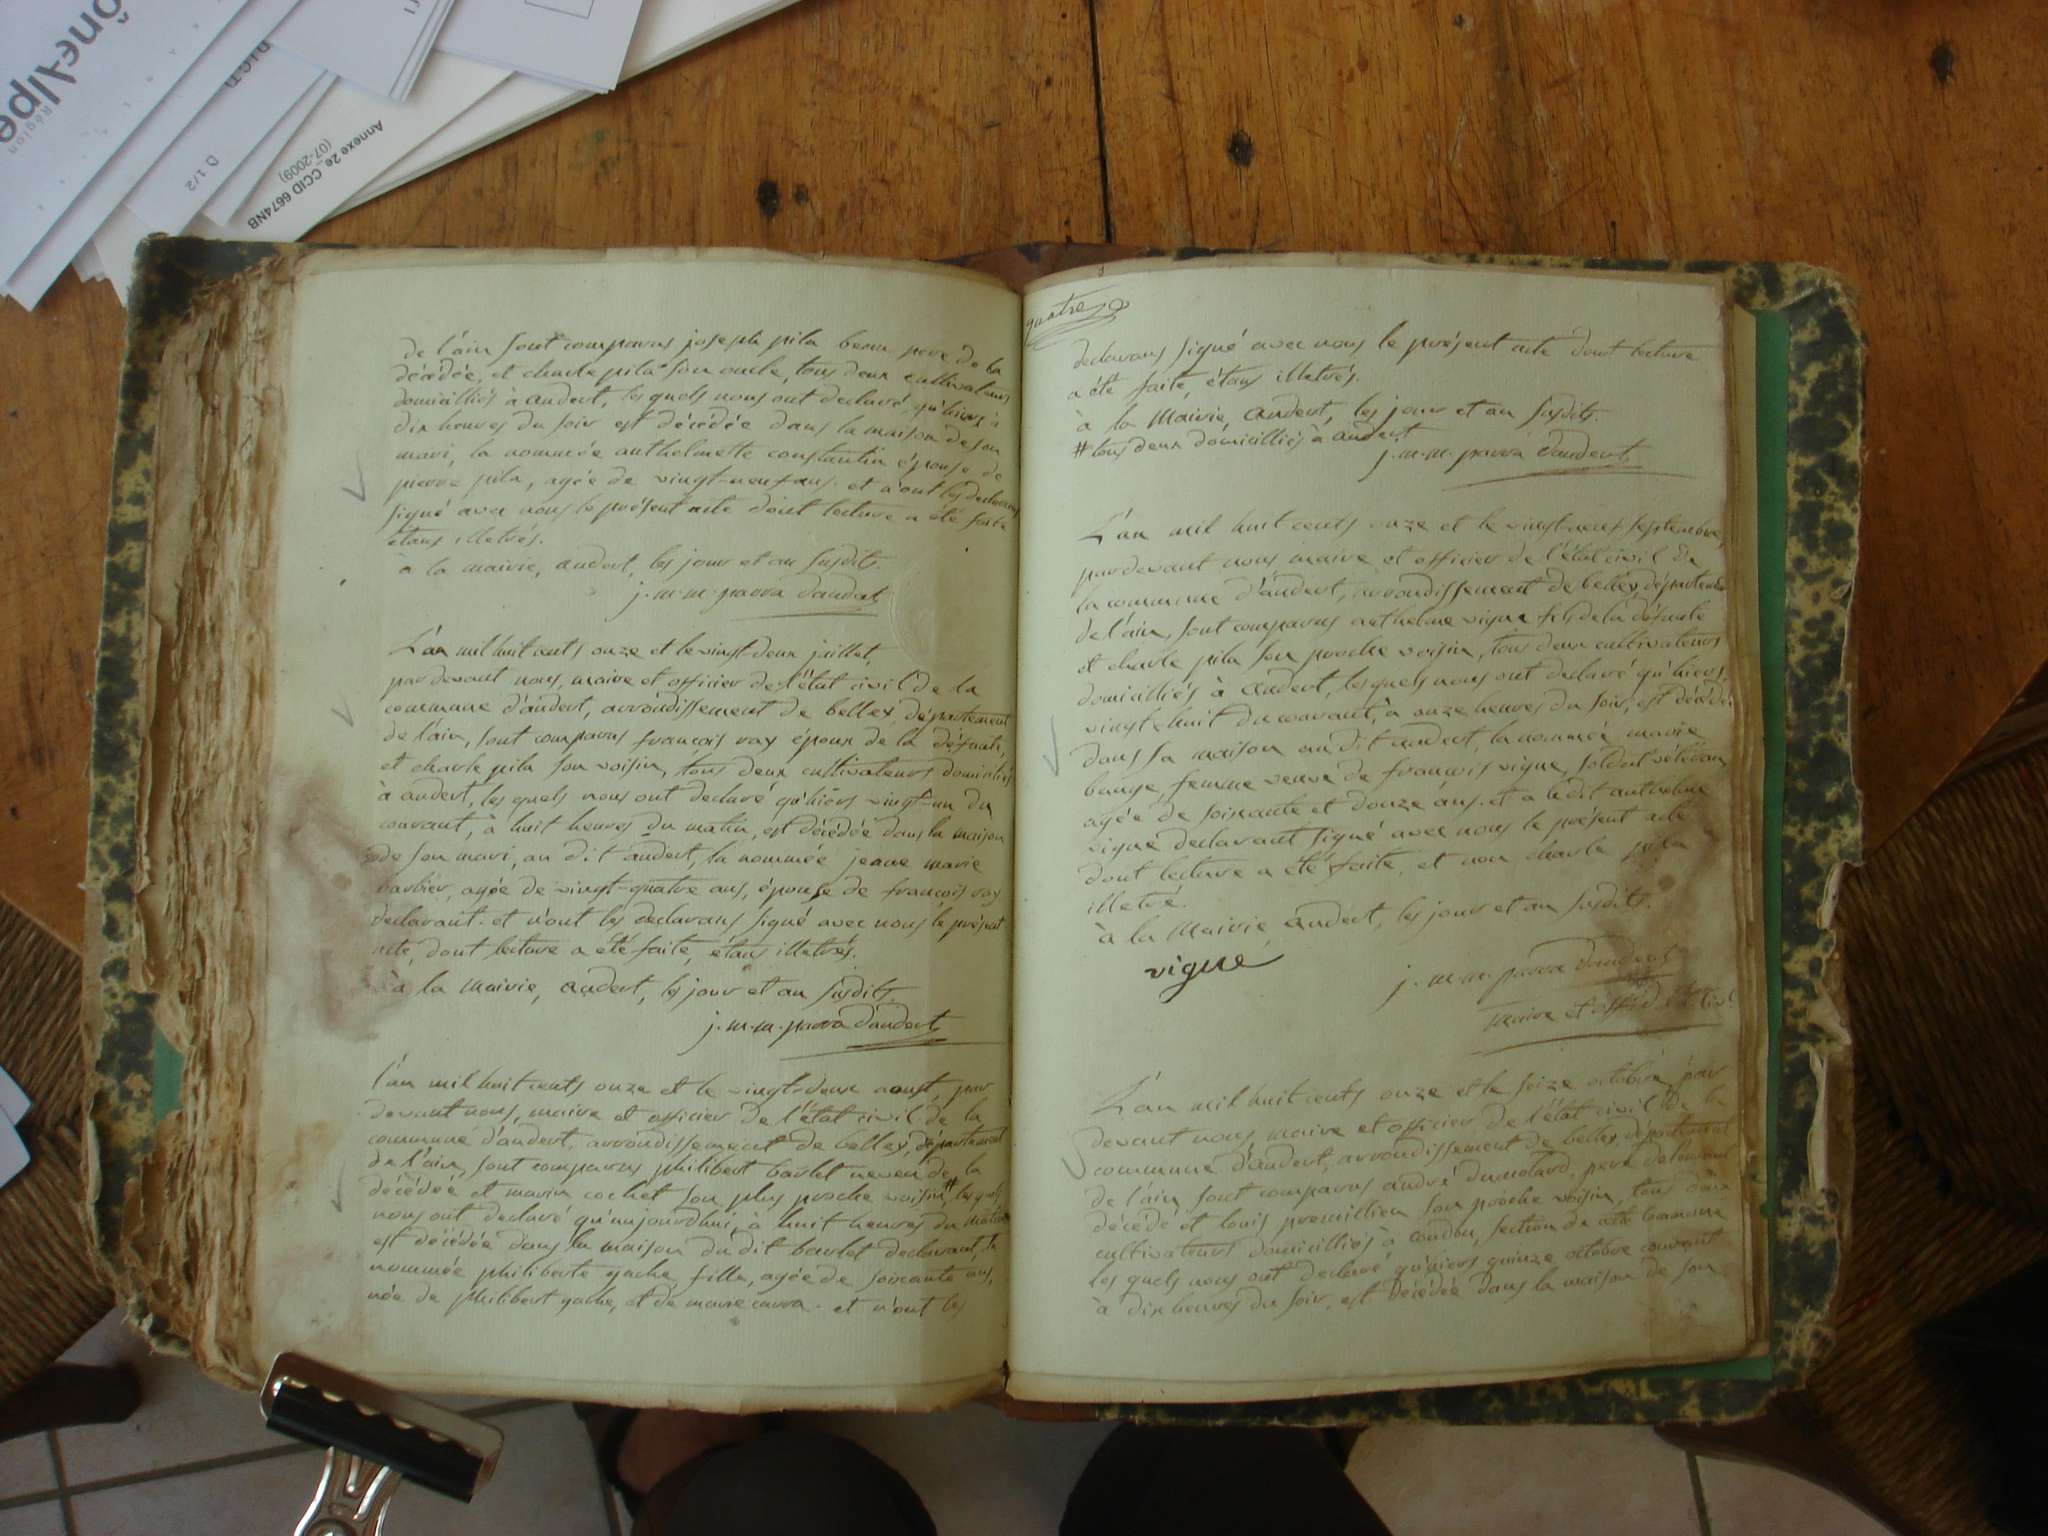 ône-Alpe
Région
D 1/2
Annexe 2e_CCID 6674NB
(07-2009)
de l'ain sont comparus joseph pila beau pere de la
décédée, et charle pila son oncle, tous deux cultivateurs
domicilliés à andert, les quels nous ont declaré, qu'hiers à
dix heures du soir est décédée dans la maison de son
mari, la nommée anthelmette constantin épouse de
pierre pila, agée de vingt-neuf ans. et n'ont les declarans
signé avec nous le présent acte dont lecture a été faite
étans illetrés.
à la mairie, andert, les jour et an susdits.
j. m. m. parra d'andert
L'an mil huit cents onze et le vingt-deux juillet,
par devant nous, maire et officier de l'état civil de la
commune d'andert, arrondissement de belley, département
de l'ain, sont comparus françois ray époux de la défunte,
et charle pila son voisin, tous deux cultivateurs domiciliés
à andert, les quels nous ont declaré qu'hiers vingt-un du
courant, à huit heures du matin, est décédée dans la maison
de son mari, au dit andert, la nommée jeane marie
barbier, agée de vingt-quatre ans, épouse de françois ray
declarant. et n'ont les declarans signé avec nous le présent
acte, dont lecture a été faite, étans illetrés.
à la Mairie, andert, les jour et an susdits.
j. m. m. parra d'andert
l'an mil huit cents onze et le vingt-deux aoust, par
devant nous, maire et officier de l'état civil de la
commune d'andert, arrondissement de belley, département
de l'ain, sont comparus philibert barlet neveu de la
décédée et marin cochet son plus proche voisin,# les quels
nous ont declaré qu'aujourdhui, à huit heures du matin
est décédée dans la maison du dit barlet declarant, la
nommée philiberte gache, fille, agée de soixante ans,
née de philibert gache, et de marie carra. et n'ont les
quatre
declarans signé avec nous le présent acte dont lecture
a été faite, étans illetrés.
à la Mairie, andert, les jour et an susdits.
# tous deux domicilliés à andert
j. m. m. parra d'andert
L'an mil huit cents onze et le vingt-neuf septembre,
par devant nous maire et officier de l'état civil de
la commune d'andert, arrondissement de belley, département
de l'ain, sont comparus anthelme vigne fils de la défunte
et charle pila son proche voisin, tous deux cultivateurs
domicilliés à andert, les quels nous ont declaré qu'hiers,
vingt-huit du courant, à onze heures du soir, est décédée
dans sa maison au dit andert, la nommée marie
bange femme veuve de françois vigne, soldat vétéran,
agée de soixante et douze ans. et a le dit anthelme
vigne declarant signé avec nous le présent acte
dont lecture a été faite, et non charle pila
illetré.
à la Mairie andert, les jour et an susdits.
vigne
j. m. m. parra d'andert
maire et off. de l'ét. civil
L'an mil huit cents onze et le seize octobre, par
devant nous, maire et officier de l'état civil de la
commune d'andert, arrondissement de belley département
de l'ain sont comparus andré dumolard, pere de l'enfant
décédé et louis premillieu son proche voisin, tous deux
cultivateurs domicilliés à condon, section de cette commune
les quels nous ont declaré qu'hiers quinze octobre courant
à dix heures du soir, est décédée dans la maison de son